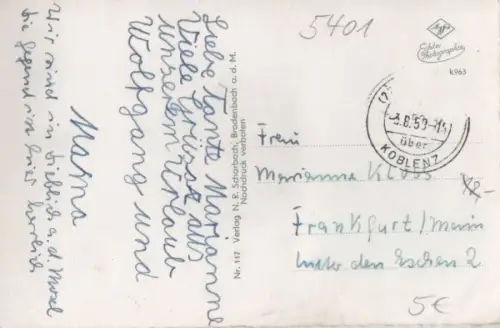 Liebe Tante Marianne
Viele Grüsse aus
unserem Urlaub
Wolfgang und
Marna
Wir sind in a. d. Mosel
die Gegend ist hier herrlich
Nr. 117 Verlag N. R. Scharbach, Brodenbach a. d. M.
Nachdruck verboten
5401
Agfa
Echte
Photographie
k963
8.59-
über
KOBLENZ
Frau
Marianne
Frankfurt/Main
Unter den Eschen 2
5€